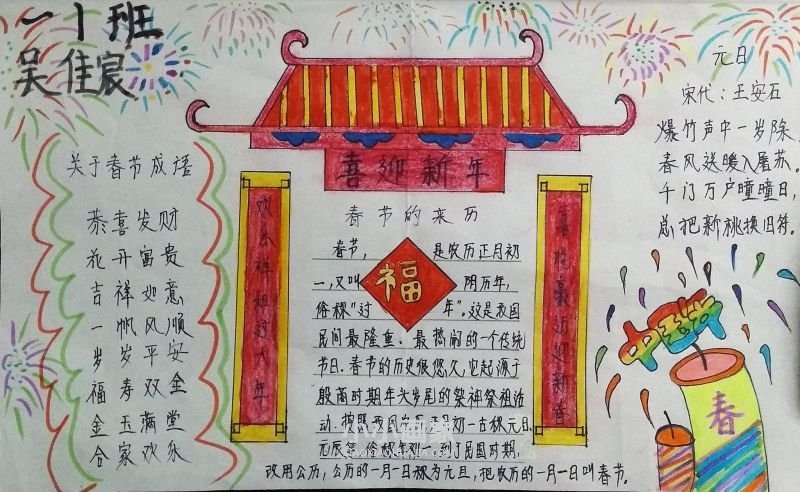 一1班
吴佳宸
关于春节成语
恭喜发财
花开富贵
吉祥如意
一帆风顺
岁岁平安
福寿双全
金玉满堂
合家欢乐
喜迎新年
欢乐祥 过大年
春节的来历
春节, 是农历正月初
一,又叫 阴历年,
福
俗称"过 年",这是我国
民间最隆重、最热闹的一个传统
节日。春节的历史很悠久,它起源于
殷商时期年头岁尾的祭神祭祖活
动。按照 初一古称元日
元辰 到了民国时期,
改用公历,公历的一月一日称为元旦,把农历的一月一日叫春节。
迎新春
元日
宋代:王安石
爆竹声中一岁除,
春风送暖入屠苏。
千门万户曈曈日,
总把新桃换旧符。
春